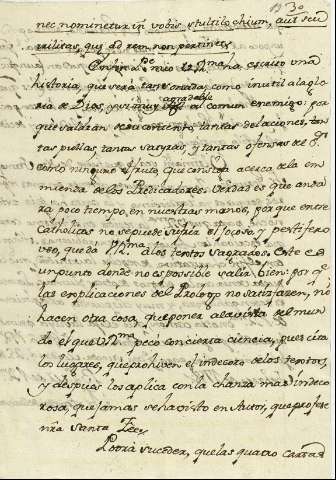 30
nec nominetur in vobis stultiloquium, aut scu
rrilitas, quę ad rem non pertinet.
Confin P.e mio V. R.ma ha escrito una
historia, que será tan sonada, como inutil a la glo
ria de Dios, y agradable al comun enemigo: por
que saldran a su contento, tantas delaciones, tan
tas pullas, tantas satyras, y tantas ofensas de
como ninguno el fruto, que consiga acerca de la en
mienda de los Predicadores. Verdad es que anda
rá poco tiempo, en nuestras manos, porque entre
Catholicos no se puede sufrir el jocoso, y pestifero
uso, que da V. R.ma a los textos Sagrados. Este es
un punto donde no es possible salir bien: por q.e
las explicaciones del Prologo no satisfazen, no
hacen otra cosa, que poner a la vista del mun
do el que V. R.ma pecó con cierta ciencia, pues cita
los lugares, que prohiven el indecoro de los textos,
y despues los aplica con la chanza mas indeco
rosa, que jamas se ha visto en Autor, que profese
nr̃a Santa Fee,
Podrá suceder, que las quatro Cartas